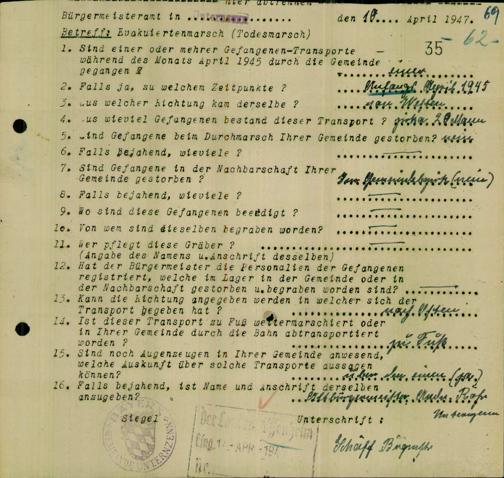 hier abtrennen
Bürgermeisteramt in den 10. April 1947. 69
Betreff: Evakuiertenmarsch (Todesmarsch) 35 -62-
1. Sind einer oder mehrer Gefangenen-Transporte
während des Monats April 1945 durch die Gemeinde
gegangen ? einer
2. Falls ja, zu welchem Zeitpunkte ? Anfangs April 1945
3. Aus welcher Richtung kam derselbe ? von Westen
4. Aus wieviel Gefangenen bestand dieser Transport ? 20 Mann
5. Sind Gefangene beim Durchmarsch Ihrer Gemeinde gestorben? nein
6. Falls Bejahend, wieviele ?
7. Sind Gefangene in der Nachbarschaft Ihrer
Gemeinde gestorben ? Gemeindebezirk (nein)
8. Falls bejahend, wieviele ?
9. Wo sind diese Gefangenen beerdigt ?
10. Von wem sind dieselben begraben worden?
11. Wer pflegt diese Gräber ?
(Angabe des Namens u.Anschrift desselben)
12. Hat der Bürgermeister die Personalien der Gefangenen
registriert, welche im Lager in der Gemeinde oder in
der Nachbarschaft gestorben u.begraben worden sind?
13. Kann die Richtung angegeben werden in welcher sich der
Transport begeben hat ? nach Osten
14. Ist dieser Transport zu Fuß weitermarschiert oder
in Ihrer Gemeinde durch die Bahn abtransportiert
worden ? zu Fuß
15. Sind noch Augenzeugen in Ihrer Gemeinde anwesend,
welche Auskunft über solche Transporte aussagen
können? über den einen (ja)
16. Falls bejahend, ist Name und Anschrift derselben
anzugeben? Altbürgermeister
Siegel Unterschrift :
Der Landrat
Eing. APR. 194
Nr.
Schäff Bürgermstr